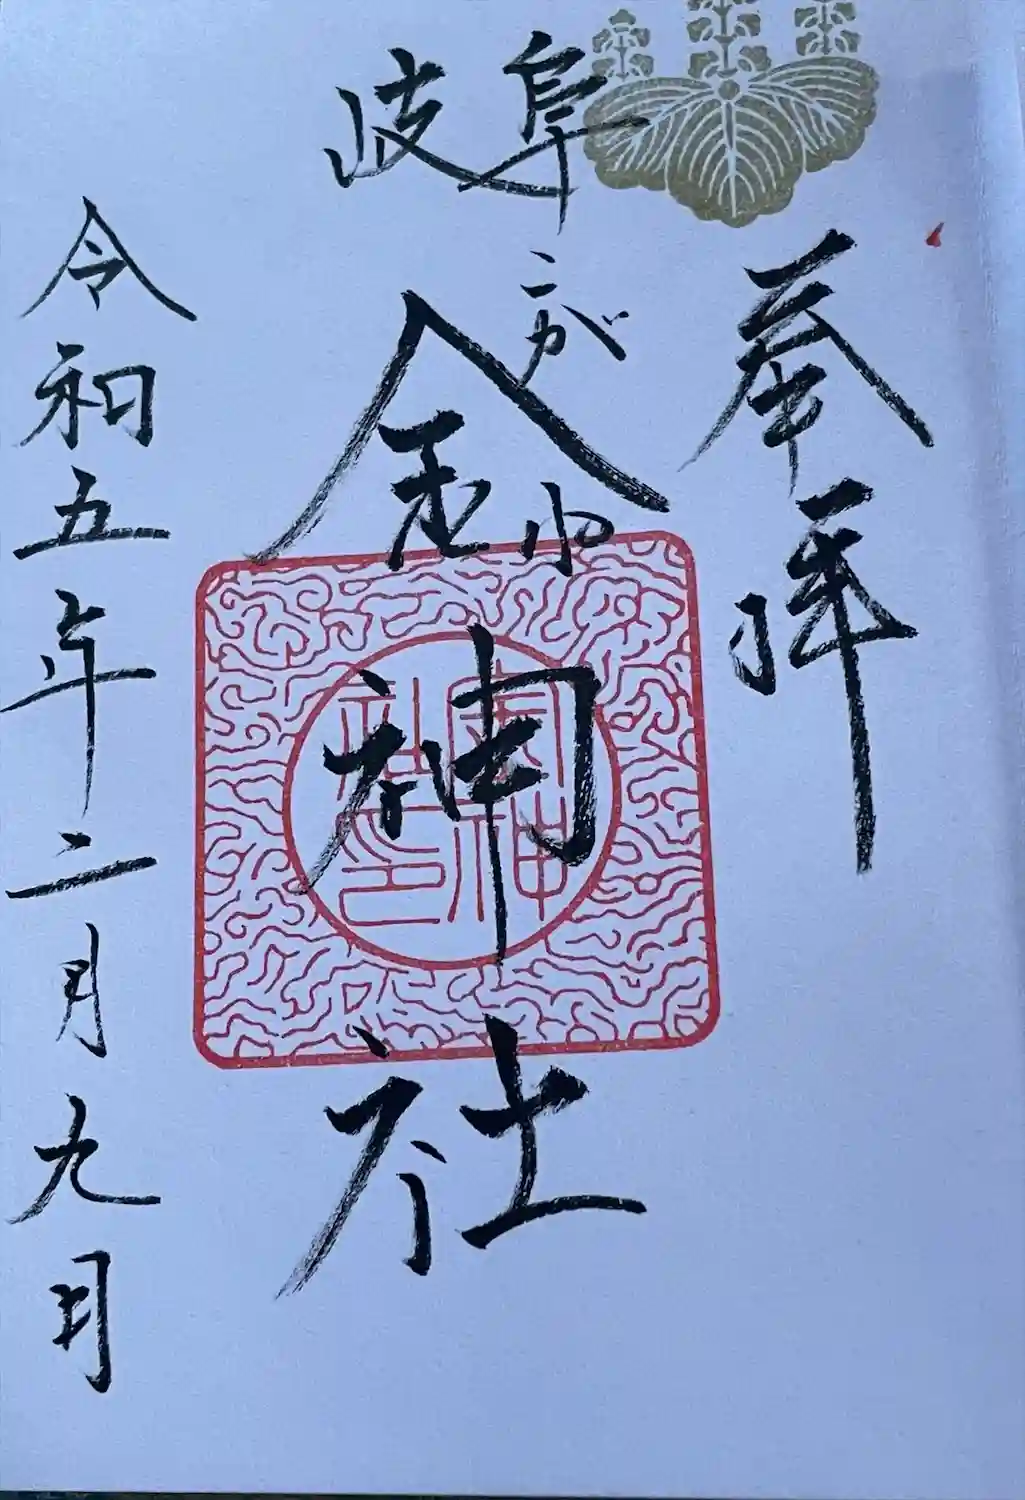 奉拝
岐阜
こがね
金神社
金神社印
令和五年二月九日